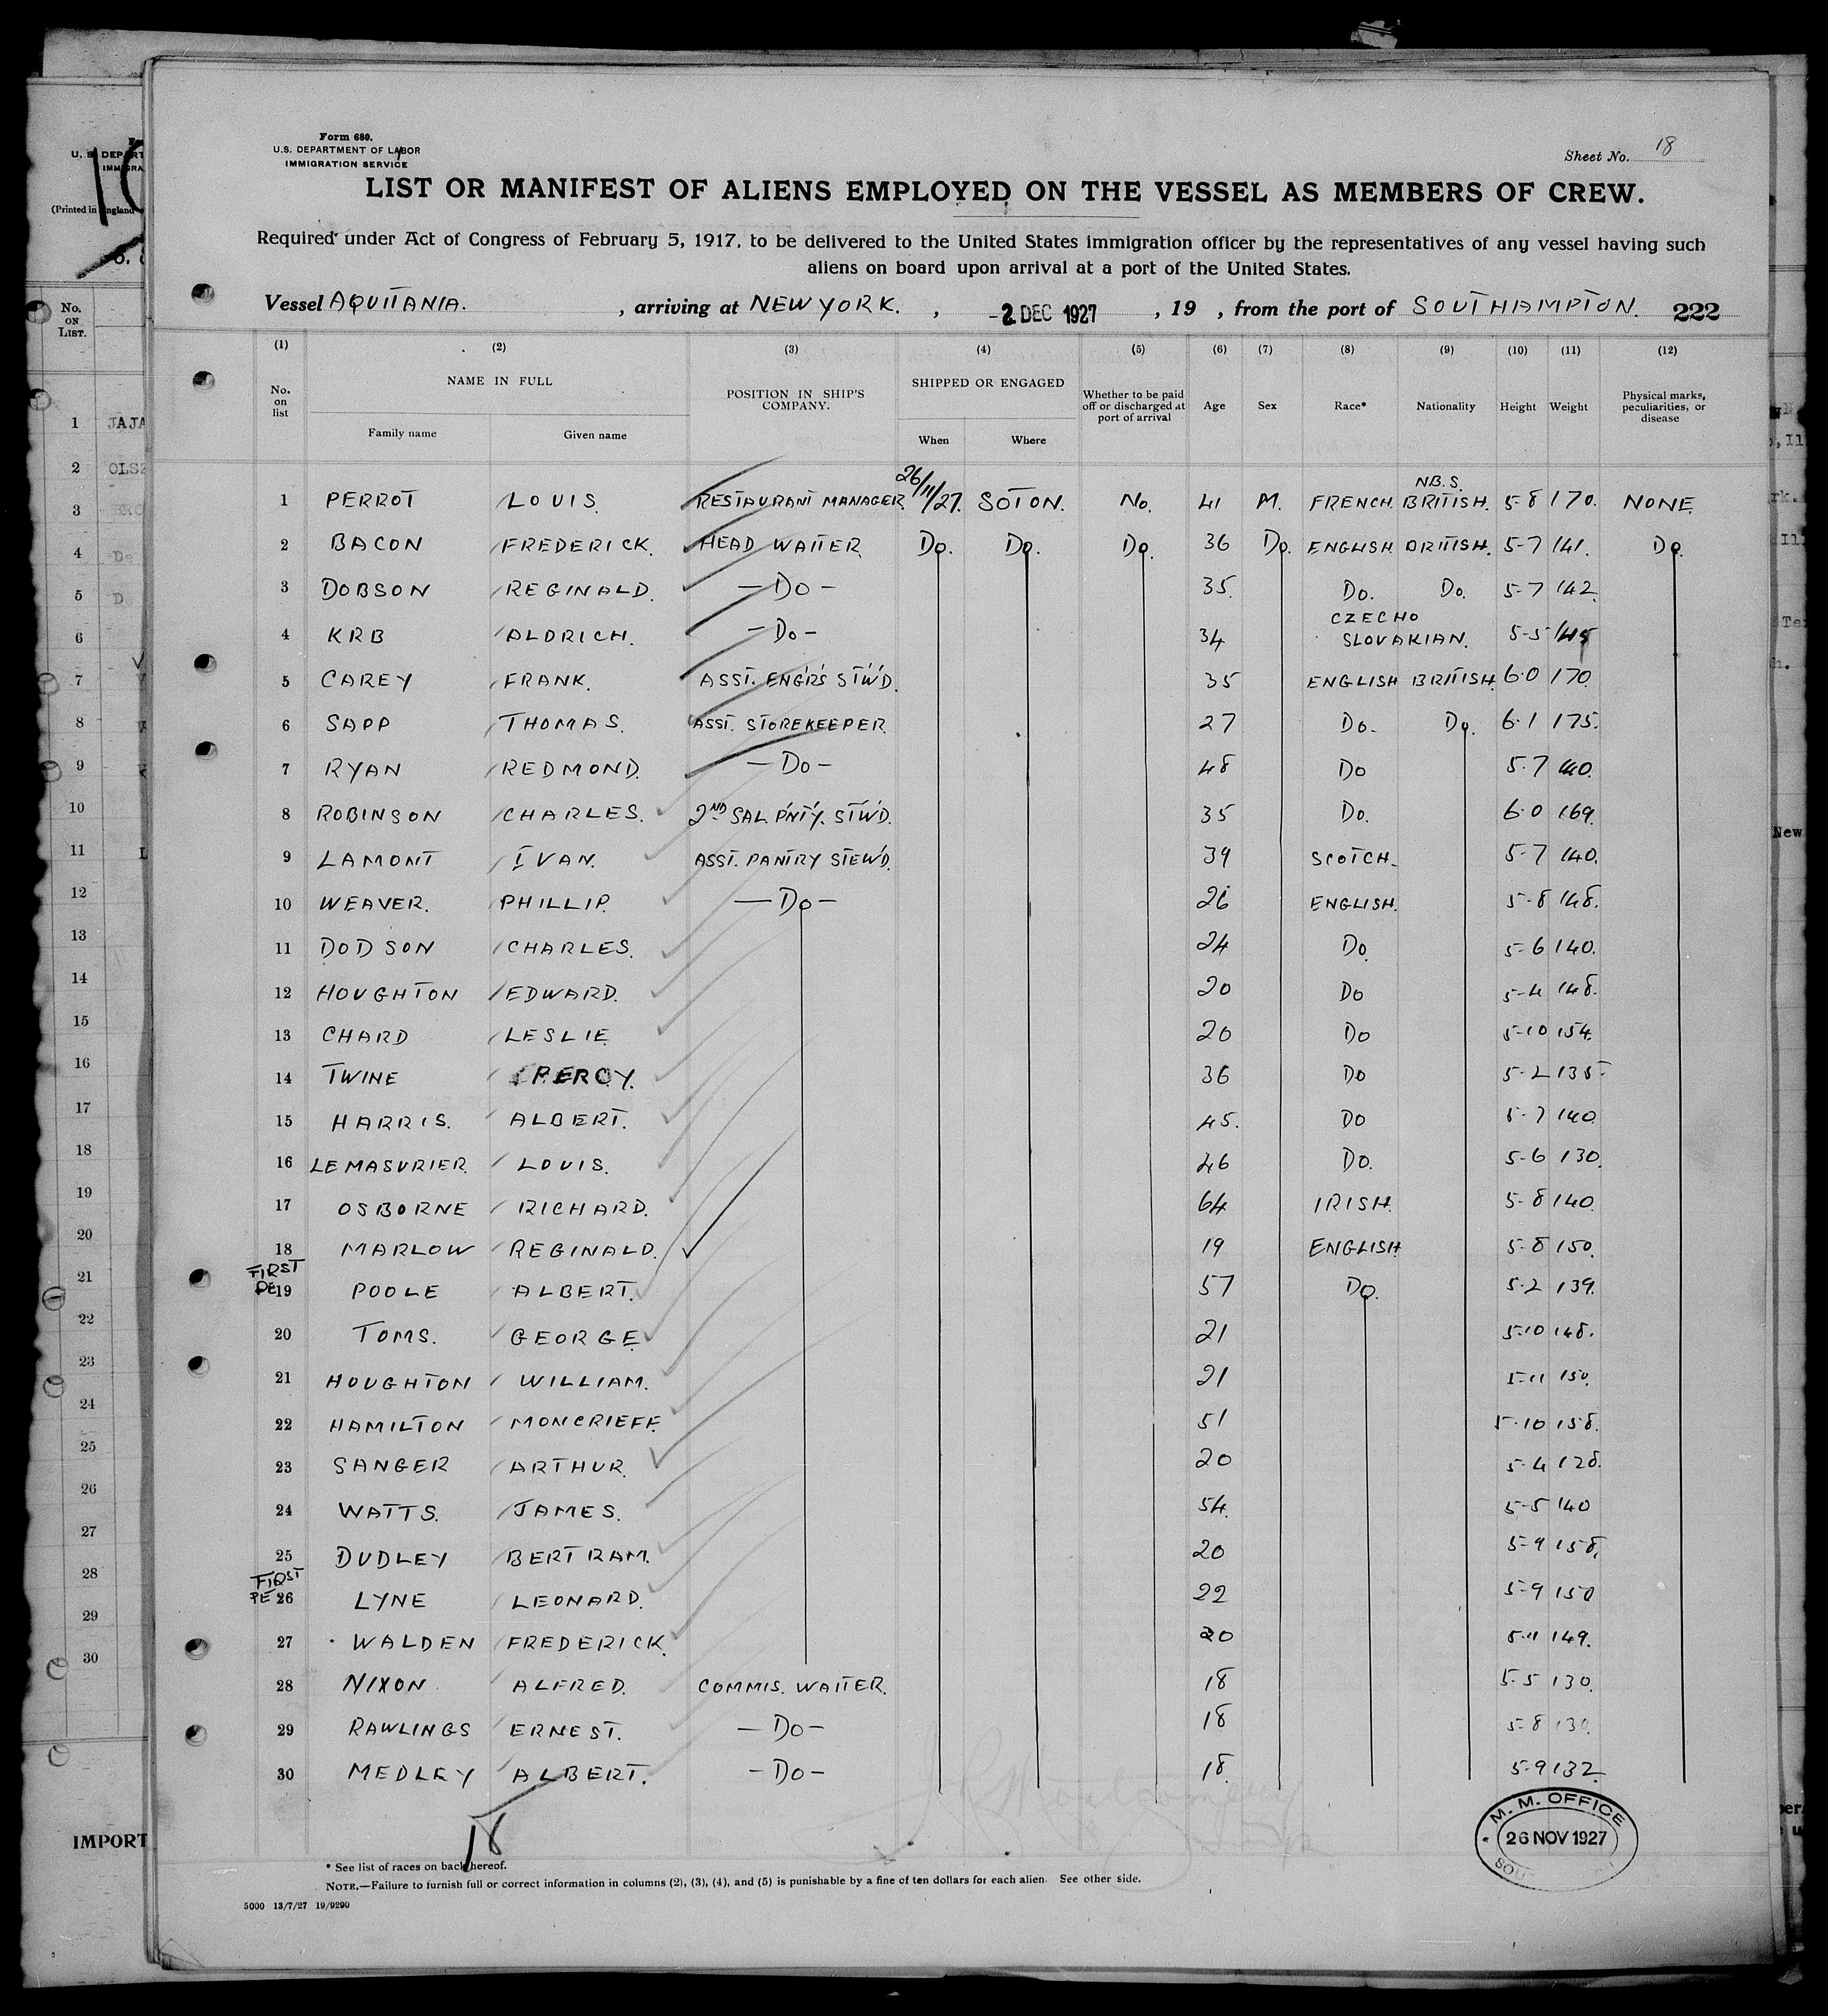 Form 680.
U.S. DEPARTMENT OF LABOR
IMMIGRATION SERVICE
Sheet No. 18
LIST OR MANIFEST OF ALIENS EMPLOYED ON THE VESSEL AS MEMBERS OF CREW.
Required under Act of Congress of February 5, 1917, to be delivered to the United States immigration officer by the representatives of any vessel having such
aliens on board upon arrival at a port of the United States.
Vessel AQUITANIA. , arriving at NEW YORK. , -2 DEC 1927 , 19 , from the port of SOUTHAMPTON. 222
(1) (2) (3) (4) (5) (6) (7) (8) (9) (10) (11) (12)
No. on list NAME IN FULL Family name Given name POSITION IN SHIP'S COMPANY. SHIPPED OR ENGAGED When Where Whether to be paid off or discharged at port of arrival Age Sex Race* Nationality Height Weight Physical marks, peculiarities, or disease
1 PERROT LOUIS. RESTAURANT MANAGER 26/11/27. SOTON. No. 41 M. FRENCH. N.B.S. BRITISH. 5-8 170. NONE.
2 BACON FREDERICK. HEAD WAITER Do. Do. Do. 36 Do. ENGLISH BRITISH. 5-7 141. Do.
3 DOBSON REGINALD. —Do— 35. Do. Do. 5-7 142.
4 KRB ALDRICH. —Do— 34 CZECHO SLOVAKIAN. 5-5 145
5 CAREY FRANK. ASST. ENGR'S STW'D. 35 ENGLISH BRITISH. 6.0 170.
6 SAPP THOMAS. ASST. STOREKEEPER. 27 Do. Do. 6.1 175.
7 RYAN REDMOND. —Do— 48 Do 5.7 140.
8 ROBINSON CHARLES. 2ND SAL. PNTY. STW'D. 35 Do. 6.0 169.
9 LAMONT IVAN. ASST. PANTRY STEW'D. 39 SCOTCH. 5-7 140.
10 WEAVER. PHILLIP. —Do— 26 ENGLISH. 5-8 148.
11 DODSON CHARLES. 24 Do. 5-6 140.
12 HOUGHTON EDWARD. 20 Do 5-4 148.
13 CHARD LESLIE. 20 Do 5-10 154.
14 TWINE PERCY. 36 Do 5-2 135.
15 HARRIS. ALBERT. 45. Do 5-7 140.
16 LEMASURIER. LOUIS. 46 Do. 5-6 130.
17 OSBORNE RICHARD. 64 IRISH. 5-8 140.
18 MARLOW REGINALD. 19 ENGLISH. 5.8 150.
FIRST
19 POOLE ALBERT. 57 Do. 5.2 139.
20 TOMS. GEORGE. 21 5.10 148.
21 HOUGHTON WILLIAM. 21 5-11 150.
22 HAMILTON MONCRIEFF. 51 5.10 158.
23 SANGER ARTHUR. 20 5-4 128.
24 WATTS. JAMES. 54. 5-5 140
25 DUDLEY BERTRAM. 20 5-9 158.
FIRST
26 LYNE LEONARD. 22 5-9 150
27 WALDEN FREDERICK. 20 5.11 149.
28 NIXON ALFRED. COMMIS. WAITER. 18 5.5 130.
29 RAWLINGS ERNEST. —Do— 18 5-8 130.
30 MEDLEY ALBERT. —Do— 18. 5-9 132.
18
M. M. OFFICE
26 NOV 1927
* See list of races on back hereof.
NOTE.—Failure to furnish full or correct information in columns (2), (3), (4), and (5) is punishable by a fine of ten dollars for each alien. See other side.
5000 13/7/27 19/9290
(Printed in England
No. ON LIST.
1 JAJA
2
3
4 De
5 D
6
7
8
9
10
11
12
13
14
15
16
17
18
19
20
21
22
23
24
25
26
27
28
29
30
IMPORT
New